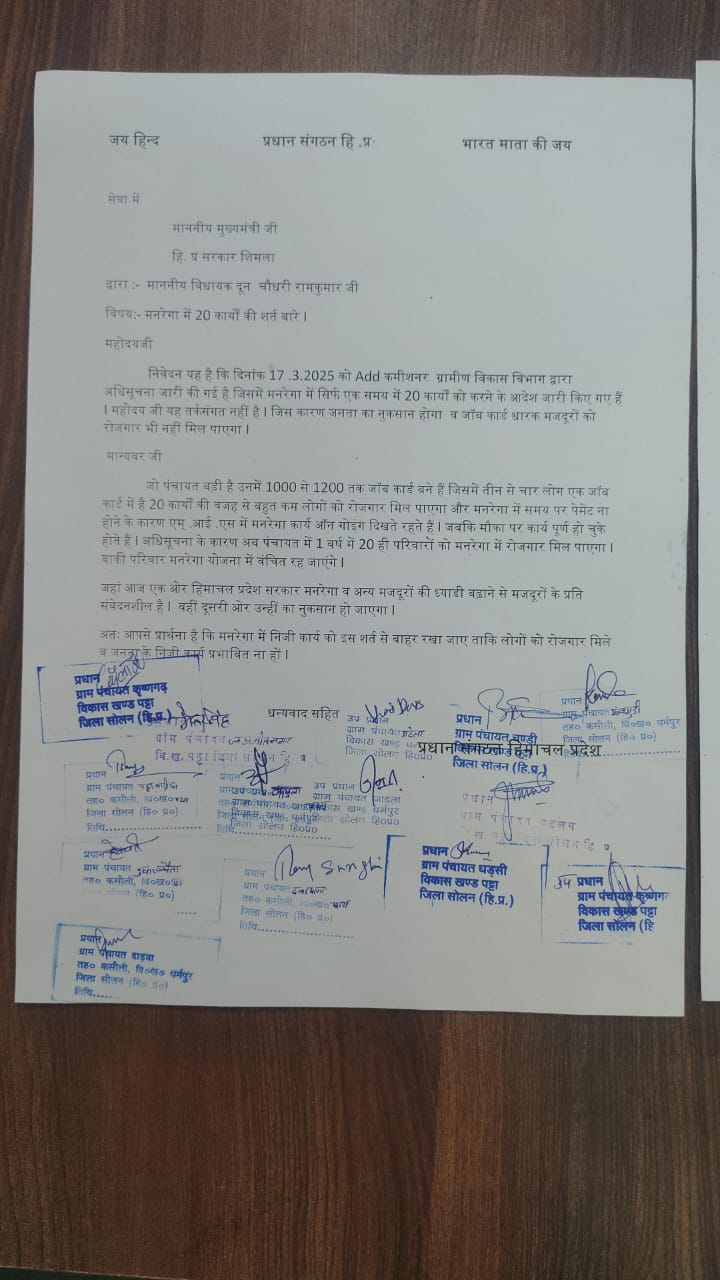 जय हिन्द प्रधान संगठन हि .प्र. भारत माता की जय
सेवा में
माननीय मुख्यमंत्री जी
हि. प्र सरकार शिमला
द्वारा :- माननीय विधायक दून चौधरी रामकुमार जी
विषय:- मनरेगा में 20 कार्यों की शर्त बारे ।
महोदयजी
निवेदन यह है कि दिनांक 17 .3.2025 को Add कमीशनर ग्रामीण विकास विभाग द्वारा
अधिसूचना जारी की गई है जिसमें मनरेगा में सिर्फ एक समय में 20 कार्यों को करने के आदेश जारी किए गए हैं
। महोदय जी यह तर्कसंगत नहीं है । जिस कारण जनता का नुकसान होगा व जॉब कार्ड धारक मजदूरों को
रोजगार भी नहीं मिल पाएगा ।
मान्यवर जी
जो पंचायत बड़ी है उनमें 1000 से 1200 तक जॉब कार्ड बने हैं जिसमें तीन से चार लोग एक जॉब
कार्ड में है 20 कार्यों की वजह से बहुत कम लोगों को रोजगार मिल पाएगा और मनरेगा में समय पर पेमेंट ना
होने के कारण एम् .आई .एस में मनरेगा कार्य ऑन गोइंग दिखते रहते हैं । जबकि मौका पर कार्य पूर्ण हो चुके
होते हैं । अधिसूचना के कारण अब पंचायत में 1 वर्ष में 20 ही परिवारों को मनरेगा में रोजगार मिल पाएगा ।
बाकी परिवार मनरेगा योजना में वंचित रह जाएंगे ।
जहां आज एक ओर हिमाचल प्रदेश सरकार मनरेगा व अन्य मजदूरों की ध्याडी बढ़ाने से मजदूरों के प्रति
संवेदनशील है । वहीं दूसरी ओर उन्हीं का नुकसान हो जाएगा ।
अतः आपसे प्रार्थना है कि मनरेगा में निजी कार्य को इस शर्त से बाहर रखा जाए ताकि लोगों को रोजगार मिले
व जनता के निजी कार्य प्रभावित ना हों ।
प्रधान
ग्राम पंचायत कृष्णगढ़
विकास खण्ड पट्टा
जिला सोलन (हि.प्र.)
धन्यवाद सहित
प्रधान संगठन हिमाचल प्रदेश
उप प्रधान
ग्राम पंचायत
विकास खण्ड
जिला सोलन हि०प्र०
प्रधान
ग्राम पंचायत चण्डी
विकास खण्ड पट्टा
जिला सोलन (हि.प्र.)
प्रधान
ग्राम पंचायत
तह० कसौली, वि०ख० धर्मपुर
जिला सोलन (हि० प्र०)
ग्राम पंचायत
वि.ख. पट्टा जिला सोलन हि प्र
प्रधान
ग्राम पंचायत
तह० कसौली, वि०ख०
जिला सोलन (हि० प्र०)
तिथि
प्रधान
उप प्रधान
ग्राम पंचायत जाडला
विकास खण्ड धर्मपुर
जिला सोलन हि०प्र०
प्रधान
ग्राम पंचायत
जिला सोलन हि प्र
प्रधान
ग्राम पंचायत
तह० कसौली, वि०ख०
जिला सोलन (हि० प्र०)
प्रधान
ग्राम पंचायत
तह० कसौली, वि०ख०
जिला सोलन (हि० प्र०)
तिथि
प्रधान
ग्राम पंचायत घड़सी
विकास खण्ड पट्टा
जिला सोलन (हि.प्र.)
उप प्रधान
ग्राम पंचायत कृष्णगढ़
विकास खण्ड पट्टा
जिला सोलन (हि
प्रधान
ग्राम पंचायत दाड़वा
तह० कसौली, वि०ख० धर्मपुर
जिला सोलन (हि० प्र०)
तिथि